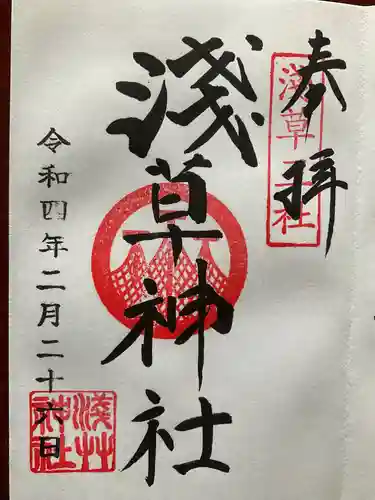 奉拝
淺草三社
淺草神社
令和四年二月二十六日
淺草神社